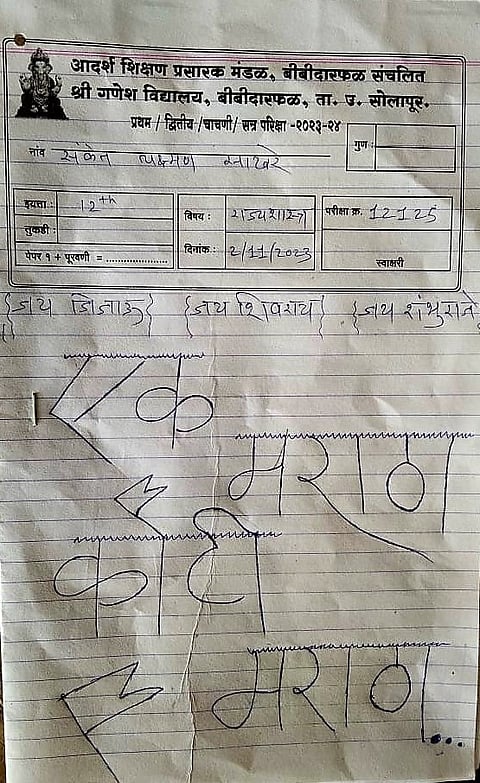 आदर्श शिक्षण प्रसारक मंडळ, बीबीदारफळ संचलित
श्री गणेश विद्यालय, बीबीदारफळ, ता. उ. सोलापूर.
प्रथम / द्वितीय /चाचणी/ सत्र परिक्षा -२०२३-२४
नांव संकेत लक्ष्मण साखरे
गुण :
इयत्ता : 12th
विषय : राज्यशास्त्र
परीक्षा क्र. 12125
तुकडी :
दिनांक : 2/11/2023
पेपर १ + पूरवणी = .....................
स्वाक्षरी
{जय जिजाऊ} {जय शिवराय} {जय शंभुराजे
एक
मराठा
कोटी
मराठा...